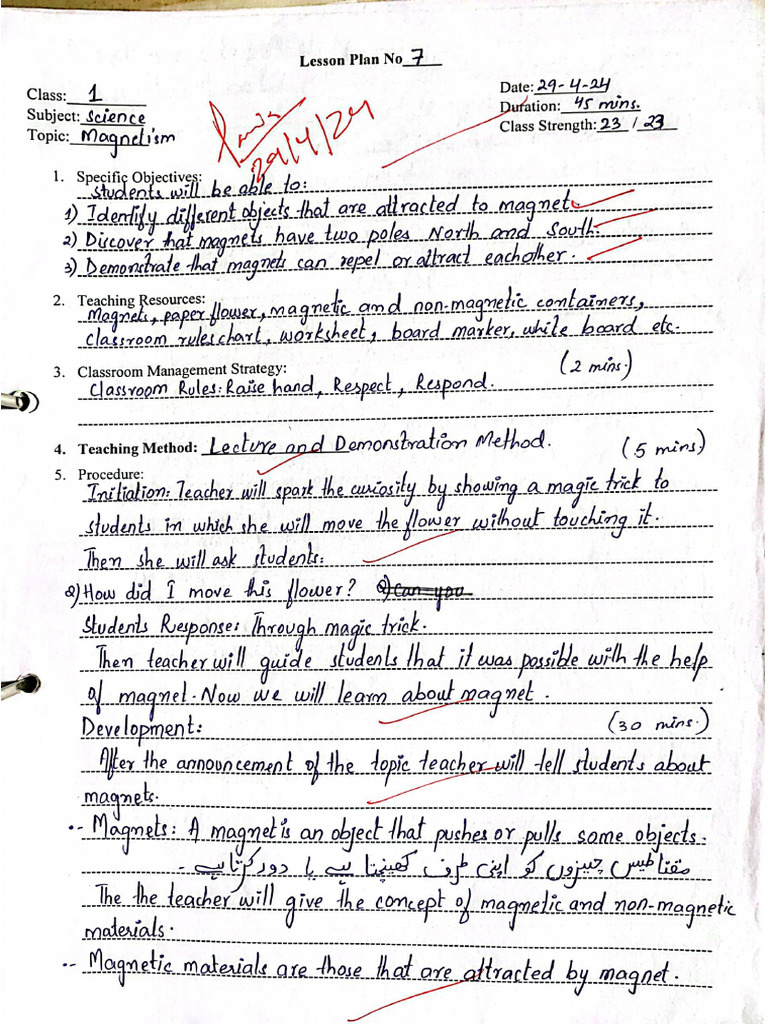 Lesson Plan No 7
Class: 1
Date: 29-4-24
Subject: Science
Duration: 45 mins.
Topic: Magnetism
Class Strength: 23 / 23
29/4/24
1. Specific Objectives:
Students will be able to:
1) Identify different objects that are attracted to magnet.
2) Discover that magnets have two poles North and South.
3) Demonstrate that magnets can repel or attract eachother.
2. Teaching Resources:
Magnets, paper flower, magnetic and non-magnetic containers,
classroom rules chart, worksheet, board marker, while board etc.
3. Classroom Management Strategy: (2 mins.)
Classroom Rules: Raise hand, Respect, Respond.
4. Teaching Method: Lecture and Demonstration Method. (5 mins)
5. Procedure:
Initiation: Teacher will spark the curiosity by showing a magic trick to
students in which she will move the flower without touching it.
Then she will ask students:
Q) How did I move this flower? Q) Can you
Students Response: Through magic trick.
Then teacher will guide students that it was possible with the help
of magnet. Now we will learn about magnet.
Development: (30 mins.)
After the announcement of the topic teacher will tell students about
magnets.
·- Magnets: A magnet is an object that pushes or pulls some objects.
مقناطیس چیزوں کو اپنی طرف کھینچتا ہے یا دور کرتا ہے -
The the teacher will give the concept of magnetic and non-magnetic
materials.
·- Magnetic materials are those that are attracted by magnet.